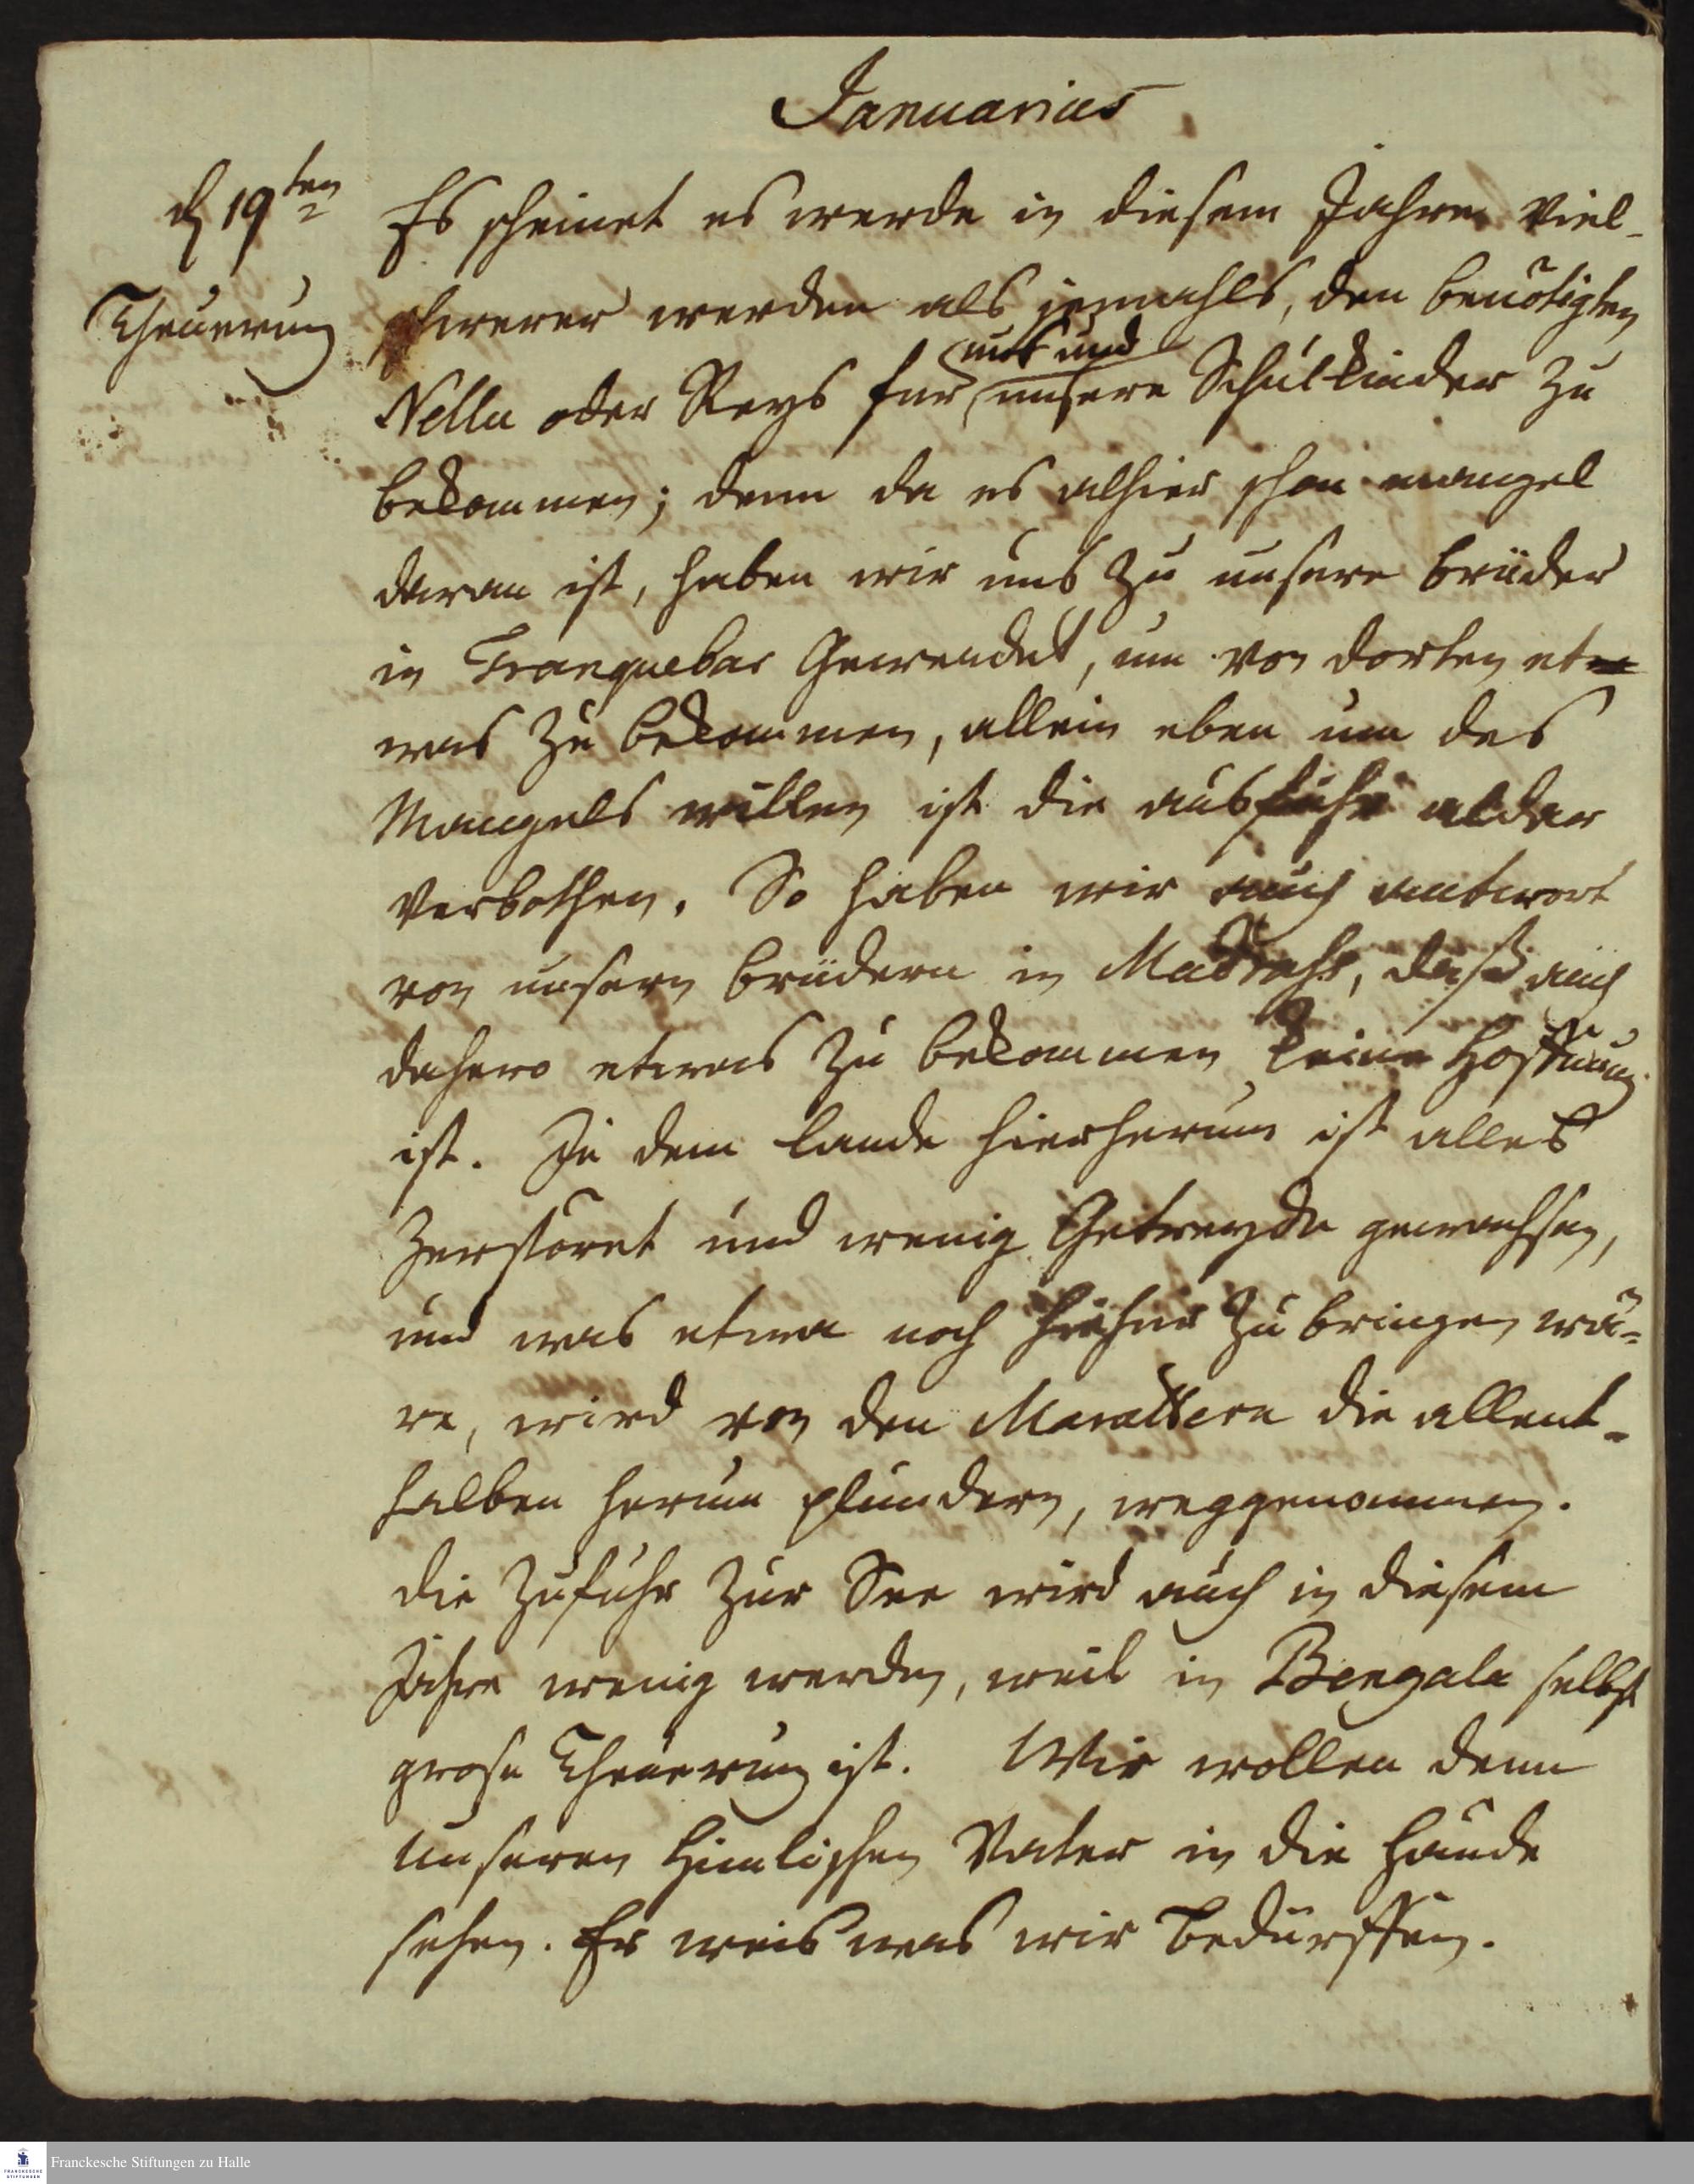 Januarius
d 19ten
Theuerung
Es scheinet es werde in diesem Jahre viel-
schwerer werden als jemahls, den benötigten
uns und
Nellu oder Reys für unsere Schulkinder zu
bekommen; denn da es alhier schon mangel
daran ist, haben wir uns zu unsere brüder
in Tranquebar Gewendet, um von dorten et-
was zu bekommen, allein eben um des
Mangels willen ist die ausfuhr alda
verbothen. So haben wir auch antwort
von unsern brüdern in Madrass, daß auch
dahero etwas zu bekommen keine Hoffnung
ist. In dem lande hierherum ist alles
Zerstöret und wenig Getreyde gewachsen,
und was etwa noch hieher zu bringen wä-
re, wird von den Marattern die allent-
halben herum plündern, weggenommen.
die Zufuhr zur See wird auch in diesem
Jahre wenig werden, weil in Bengala selbst
grose Theuerung ist. Wir wollen denn
unseren Himlischen Vater in die Hände
sehen. Er weis was wir bedürffen.
Franckesche Stiftungen zu Halle
FRANCKESCHE
STIFTUNGEN